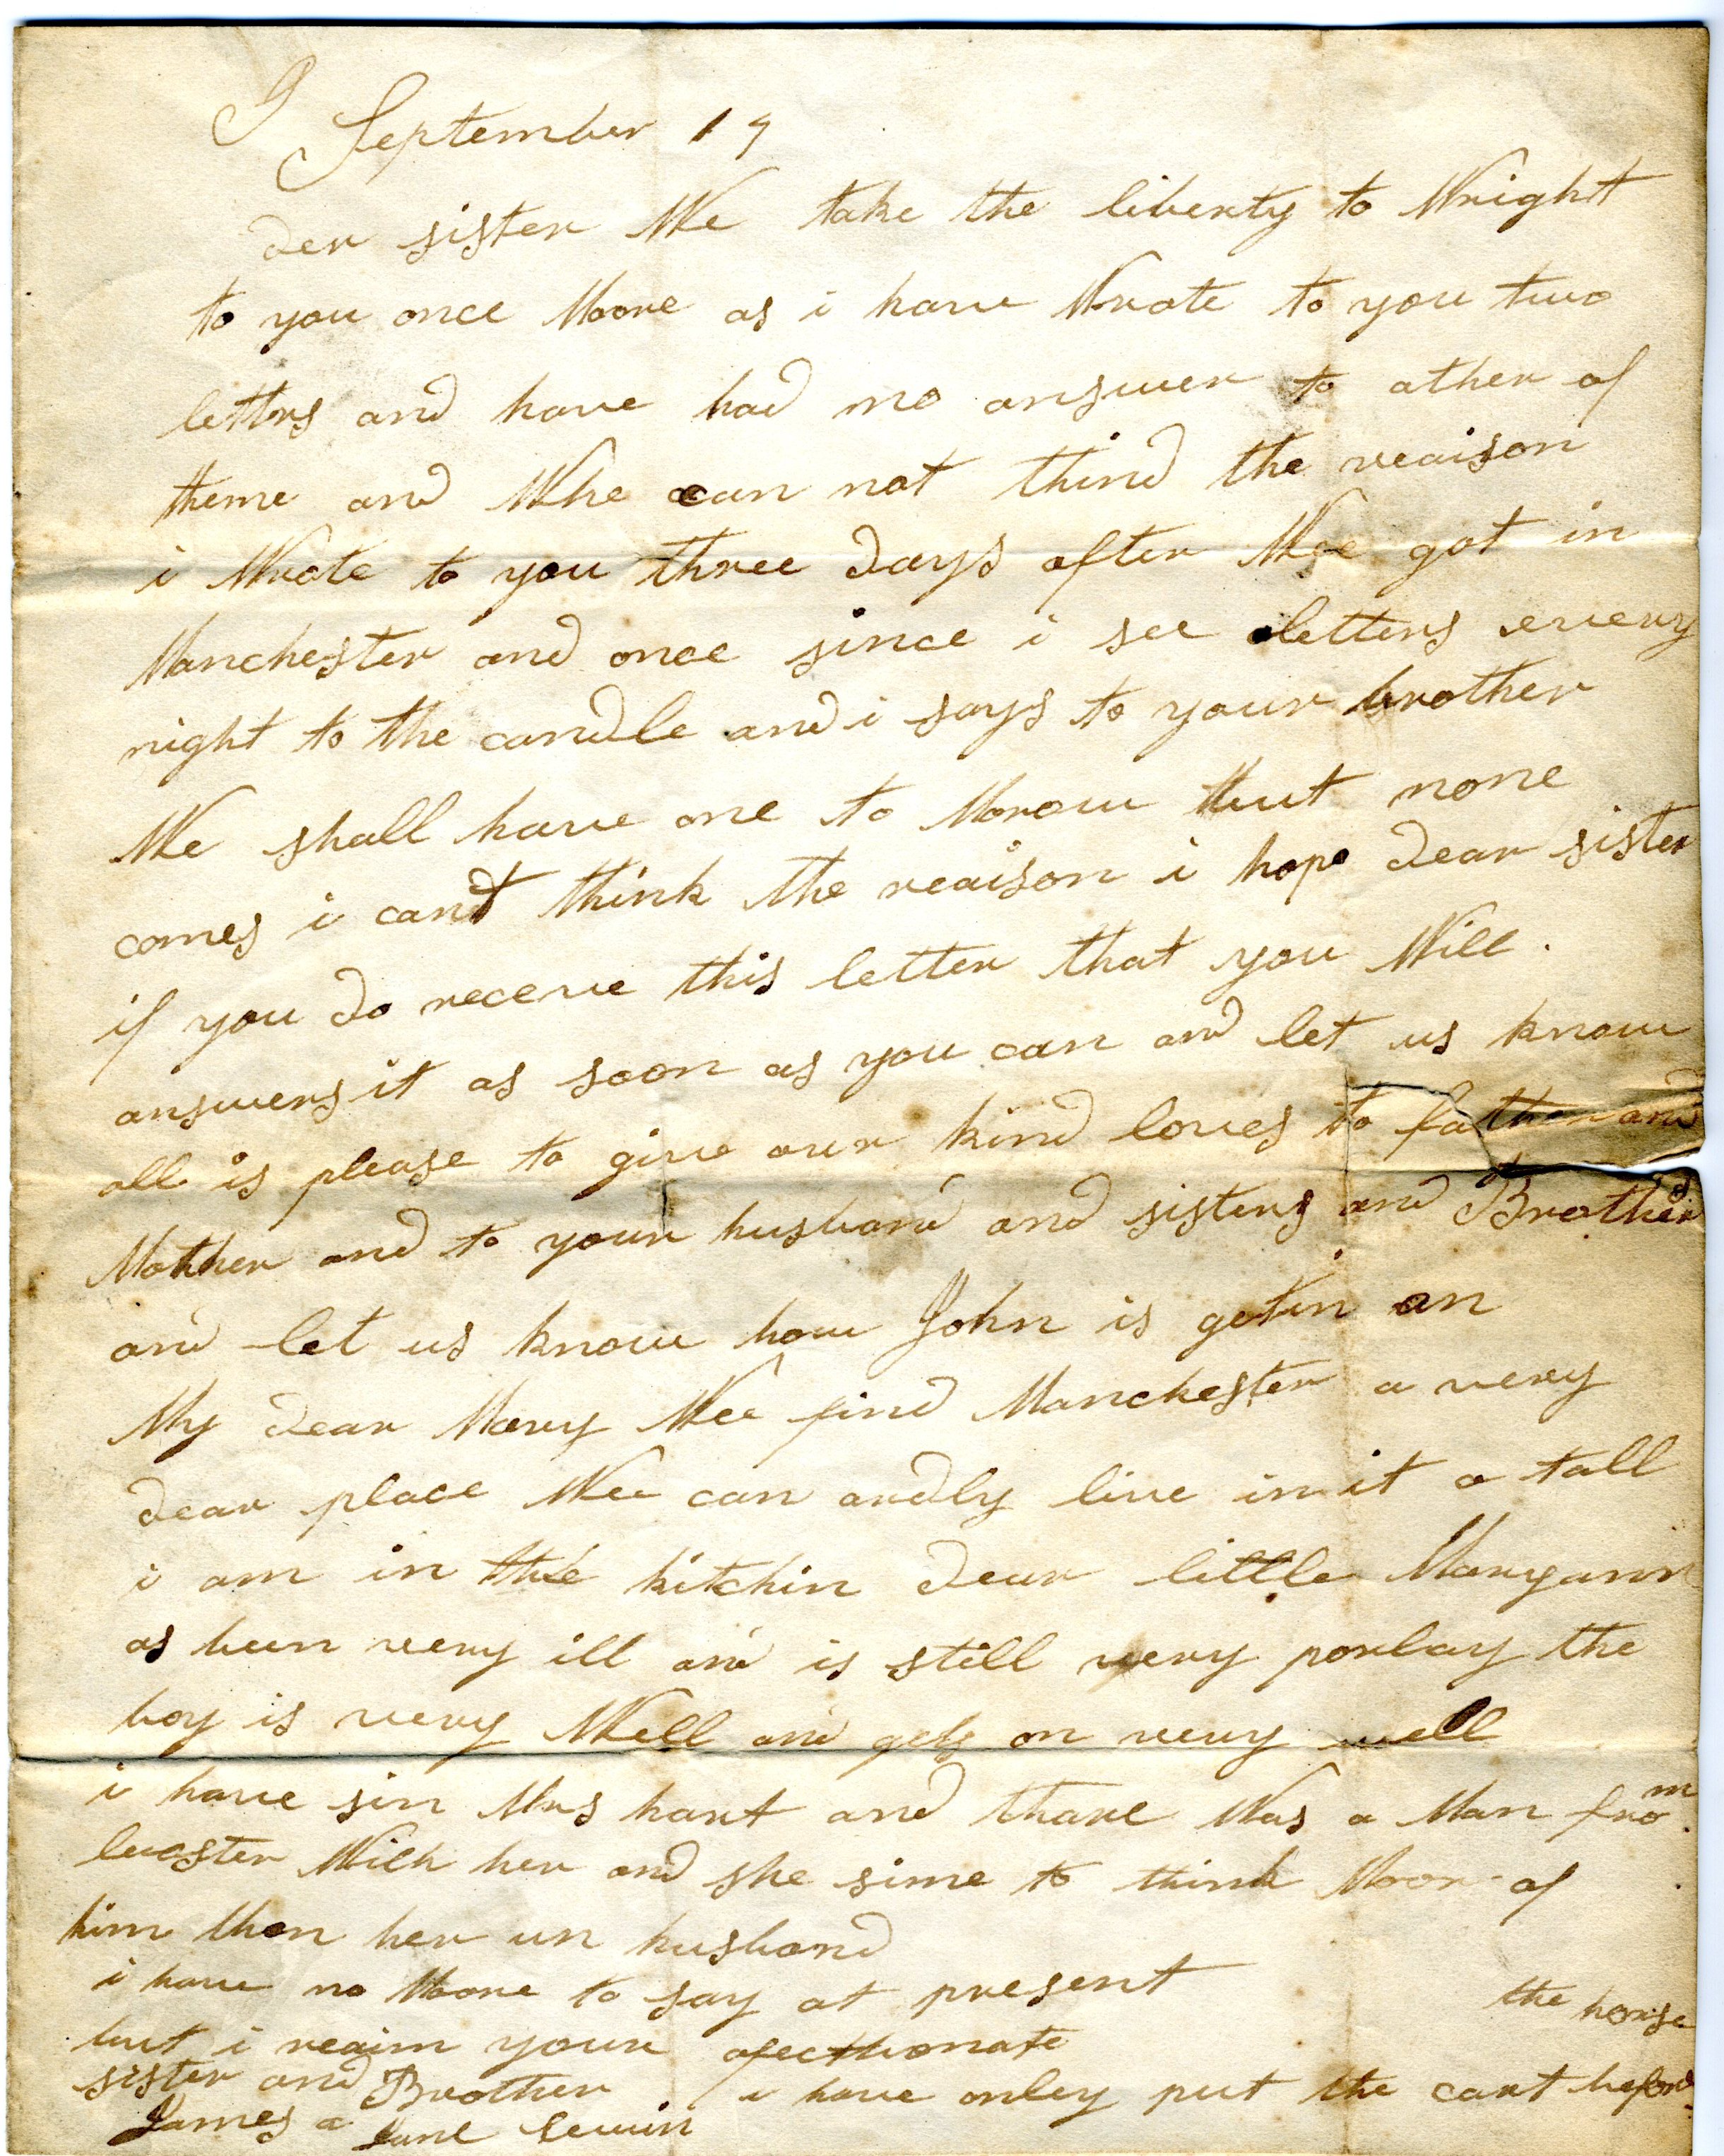 September 19
der sister We take the liberty to Wright
to you once Moore as i have Wrote to you two
letters and have had no answer to ather of
theme and Whe can not thind the reaison
i Wrote to you three days after Wee got in
Manchester and once since i see letters every
night to the candle and i says to your brother
We shall have one to Morow but none
comes i cant think the reaison i hope dear sister
if you do receve this letter that you Will
answers it as soon as you can and let us know
all is please to give our kind loves to father and
Mother and to your husband and sisters and Brothers
and let us know how John is getin on
My dear Mary Wee find Manchester a very
dear place Wee can ardly live in it a tall
i am in the kitchin dear little Maryann
as been very ill and is still very porlay the
boy is very Well and gets on very well
i have sin Mrs hart and thare Was a Man from
lecster With her and she sime to think Moor of
him then her un husband
i have no Moore to say at present
but i reaim your afecthonate
sister and Brother
James a Jane Lewin
the horse
i have onley put the cart before